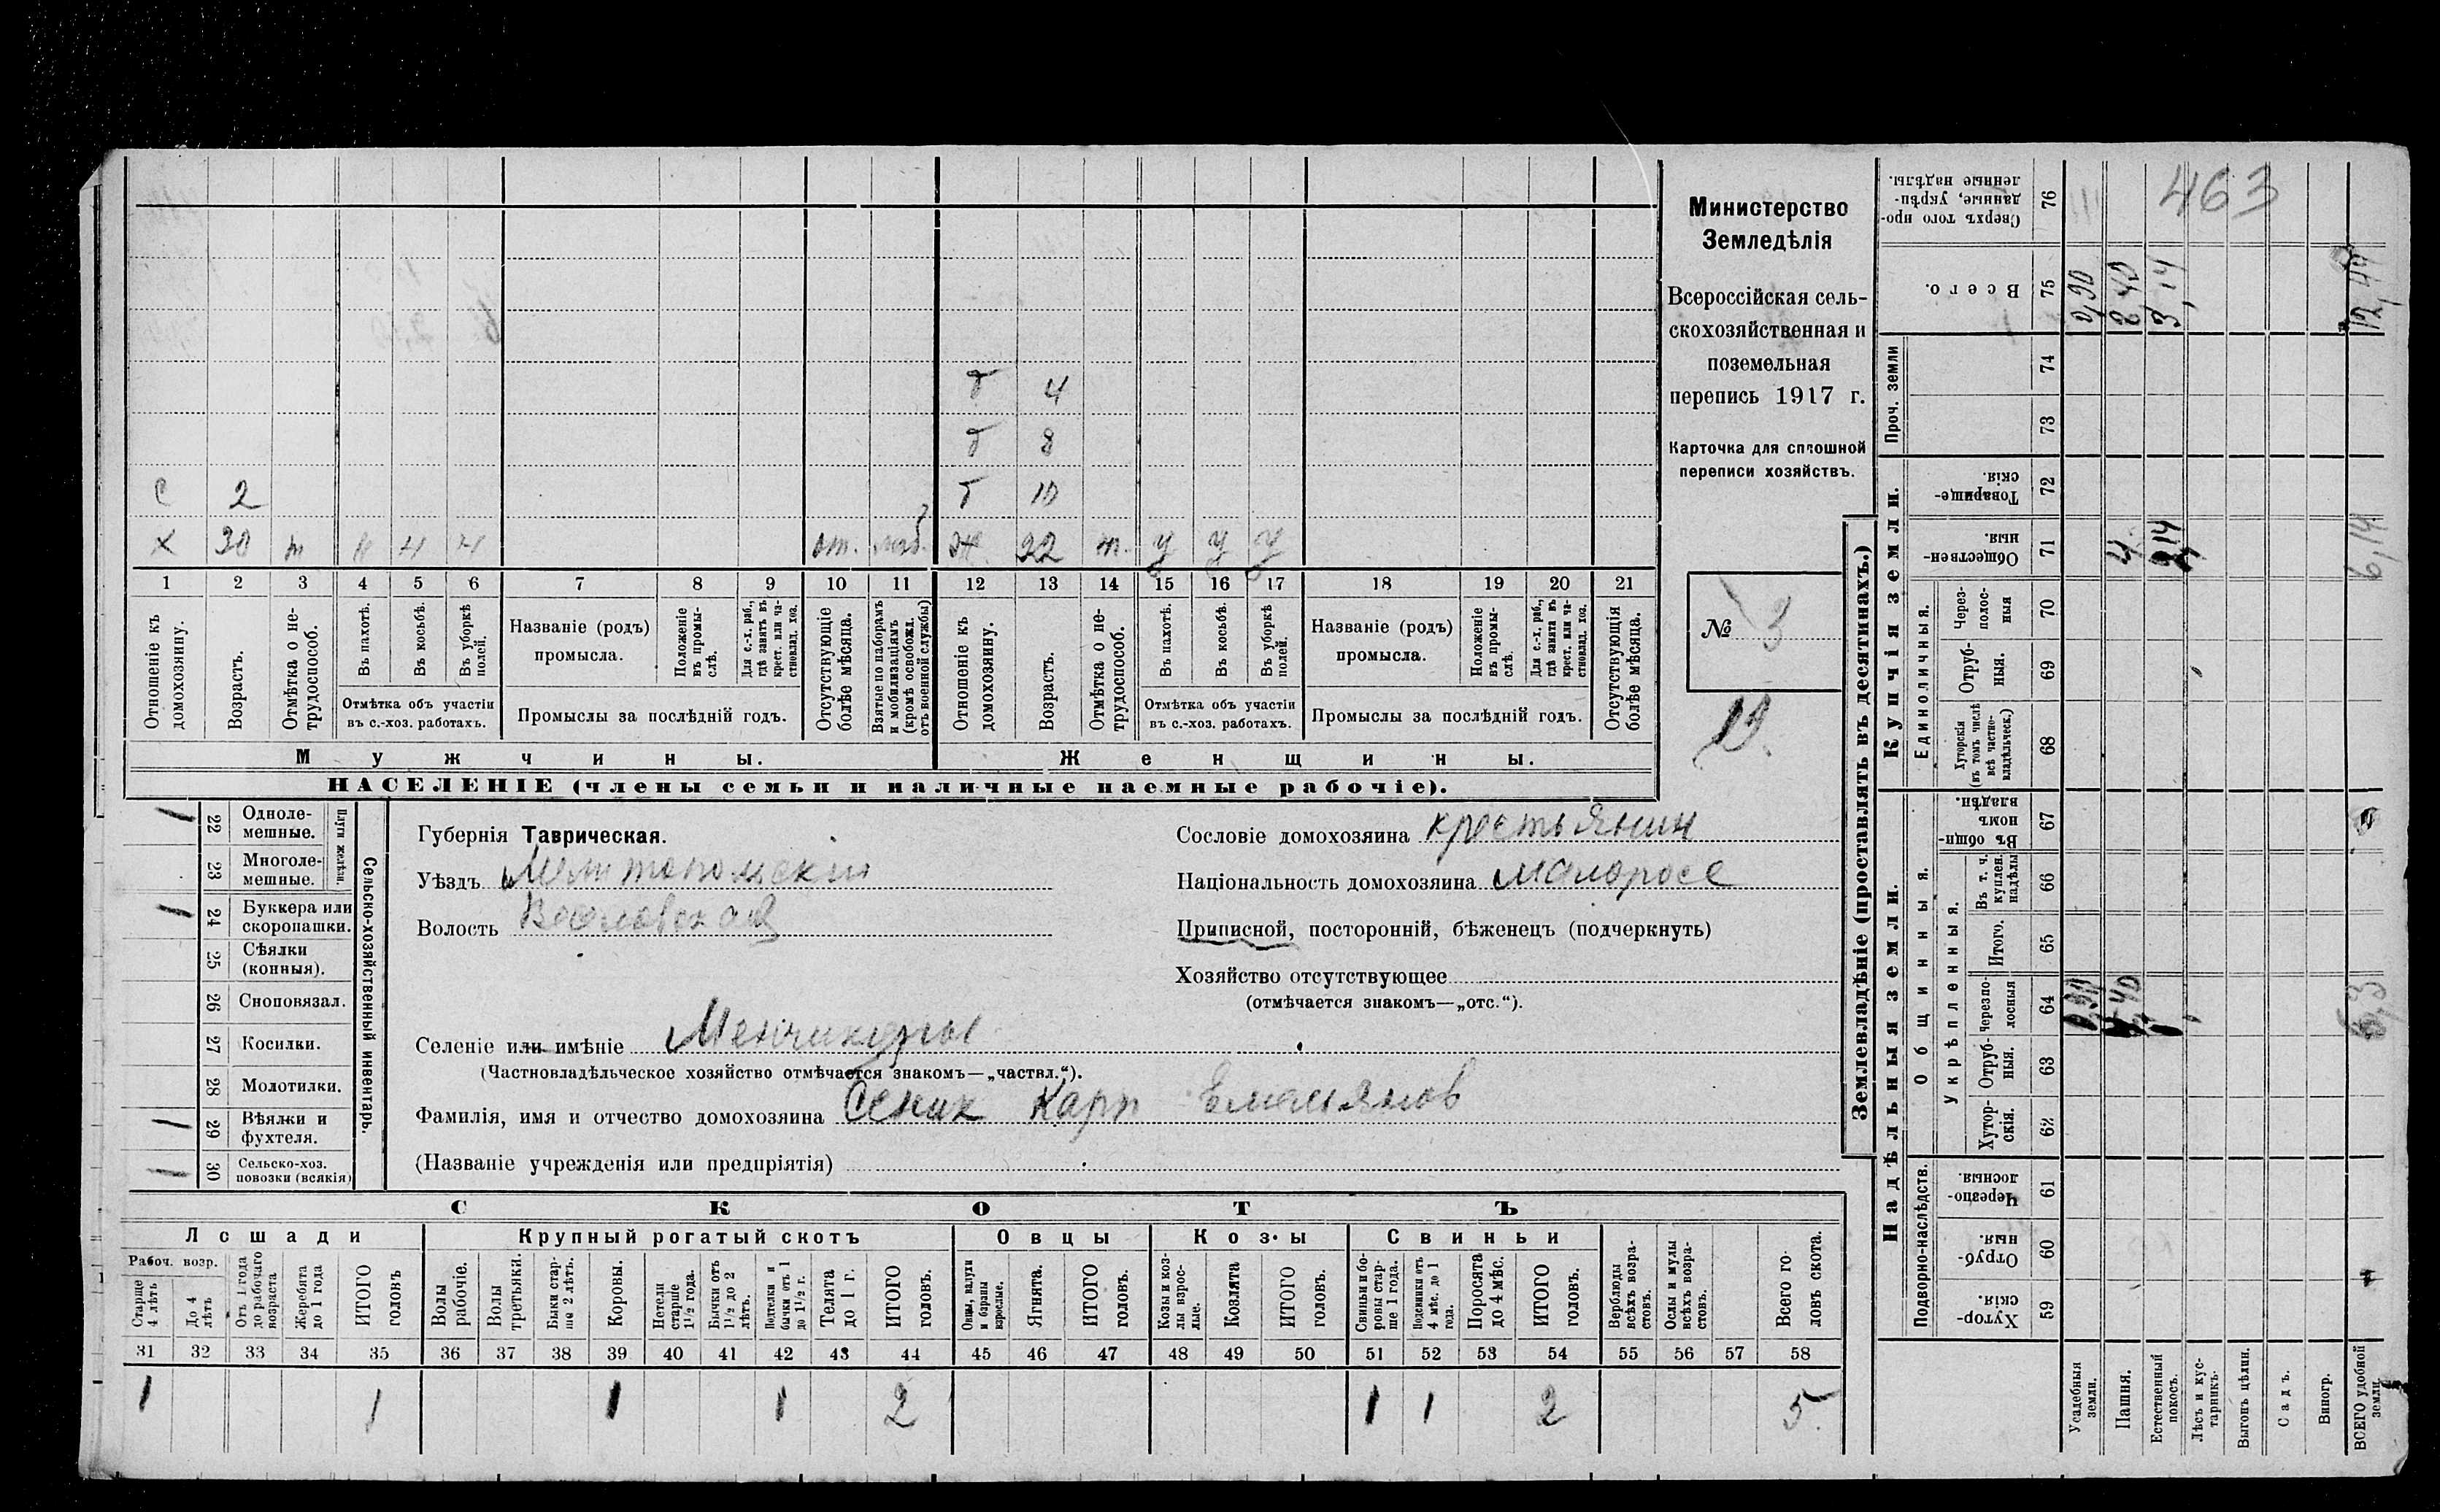 463
Министерство
Земледѣлія
Всероссійская сель-
скохозяйственная и
поземельная
перепись 1917 г.
Карточка для сплошной
переписи хозяйствъ.
№ 3
Т 4
Т 8
С 2 Т 10
Х 30 т н н н от. моб. Ж 22 т. у у у
1 2 3 4 5 6 7 8 9 10 11 12 13 14 15 16 17 18 19 20 21
Отношеніе къ домохозяину.
Возрастъ.
Отмѣтка о не-трудоспособ.
Въ пахотѣ.
Въ косьбѣ.
Въ уборкѣ полей.
Отмѣтка объ участіи
въ с.-хоз. работахъ.
Названіе (родъ)
промысла.
Положеніе въ промы-слѣ.
Для с.-х. раб., гдѣ занятъ въ крест. или ча-стновлад. хоз.
Промыслы за послѣдній годъ.
Отсутствующіе болѣе мѣсяца.
Взятые по наборамъ и мобилизаціямъ (кромѣ освобожд. отъ военной службы)
Отношеніе къ домохозяину.
Возрастъ.
Отмѣтка о не-трудоспособ.
Въ пахотѣ.
Въ косьбѣ.
Въ уборкѣ полей.
Отмѣтка объ участіи
въ с.-хоз. работахъ.
Названіе (родъ)
промысла.
Положеніе въ промы-слѣ.
Для с.-х. раб., гдѣ занята въ крест. или ча-стновлад. хоз.
Промыслы за послѣдній годъ.
Отсутствующія болѣе мѣсяца.
Мужчины. Женщины.
НАСЕЛЕНІЕ (члены семьи и наличные наемные рабочіе).
Сельско-хозяйственный инвентарь.
Плуги желѣзн.
1 22 Одноле-мешные.
23 Многоле-мешные.
1 24 Буккера или скоропашки.
25 Сѣялки (конныя).
26 Сноповязал.
27 Косилки.
28 Молотилки.
1 29 Вѣялки и фухтеля.
1 30 Сельско-хоз. повозки (всякія)
Губернія Таврическая.
Уѣздъ Мелитопольскій
Волость Веселовская
Селеніе или имѣніе Менчикуры
(Частновладѣльческое хозяйство отмѣчается знакомъ—„частвл.“).
Фамилія, имя и отчество домохозяина Сеник Карп Емельянов
(Названіе учрежденія или предпріятія)
Сословіе домохозяина крестьянин
Національность домохозяина малоросс
Приписной, посторонній, бѣженецъ (подчеркнуть)
Хозяйство отсутствующее
(отмѣчается знакомъ—„отс.“).
СКОТЪ
Лошади Крупный рогатый скотъ Овцы Козы Свиньи
Рабоч. возр.
Старше 4 лѣтъ
До 4 лѣтъ
Отъ 1 года до рабочаго возраста
Жеребята до 1 года
ИТОГО головъ
Волы рабочіе.
Волы третьяки.
Быки стар-ше 2 лѣтъ.
Коровы.
Нетели старше 1½ года.
Бычки отъ 1½ до 2 лѣтъ.
Нетелки и бычки отъ 1 до 1½ г.
Телята до 1 г.
ИТОГО головъ.
Овцы, валухи и бараны взрослые.
Ягнята.
ИТОГО головъ.
Козы и коз-лы взрос-лые.
Козлята
ИТОГО головъ.
Свиньи и бо-ровы стар-ше 1 года.
Подсвинки отъ 4 мѣс. до 1 года.
Поросята до 4 мѣс.
ИТОГО головъ.
Верблюды всѣхъ возра-стовъ.
Ослы и мулы всѣхъ возра-стовъ.
Всего го-ловъ скота.
31 32 33 34 35 36 37 38 39 40 41 42 43 44 45 46 47 48 49 50 51 52 53 54 55 56 57 58
1 1 1 1 2 1 1 2 5
Землевладѣніе (проставлять въ десятинахъ.)
Надѣльныя земли. Купчія земли. Проч. земли
Подворно-наслѣдств. Общинныя. Укрѣпленныя. Единоличныя.
59 Хутор-скія.
60 Отруб-ныя.
61 Черезпо-лосныя
62 Хутор-скія.
63 Отруб-ныя.
64 Черезпо-лосныя
65 Итого.
66 Въ т. ч. куплен. надѣлы
67 Въ общин-номъ владѣн.
68 Хуторскія (въ томъ числѣ всѣ частно-владѣльческ.)
69 Отруб-ныя.
70 Через-полос-ныя
71 Обществен-ныя.
72 Товарище-скія
73
74
75 Всего.
76 Сверхъ того про-данные, укрѣп-ленные надѣлы.
Усадебныя земли.
Пашня.
Естественный покосъ.
Лѣсъ и кус-тарникъ.
Выгонъ цѣлин.
Садъ.
Виногр.
ВСЕГО удобной земли.
4 6,14